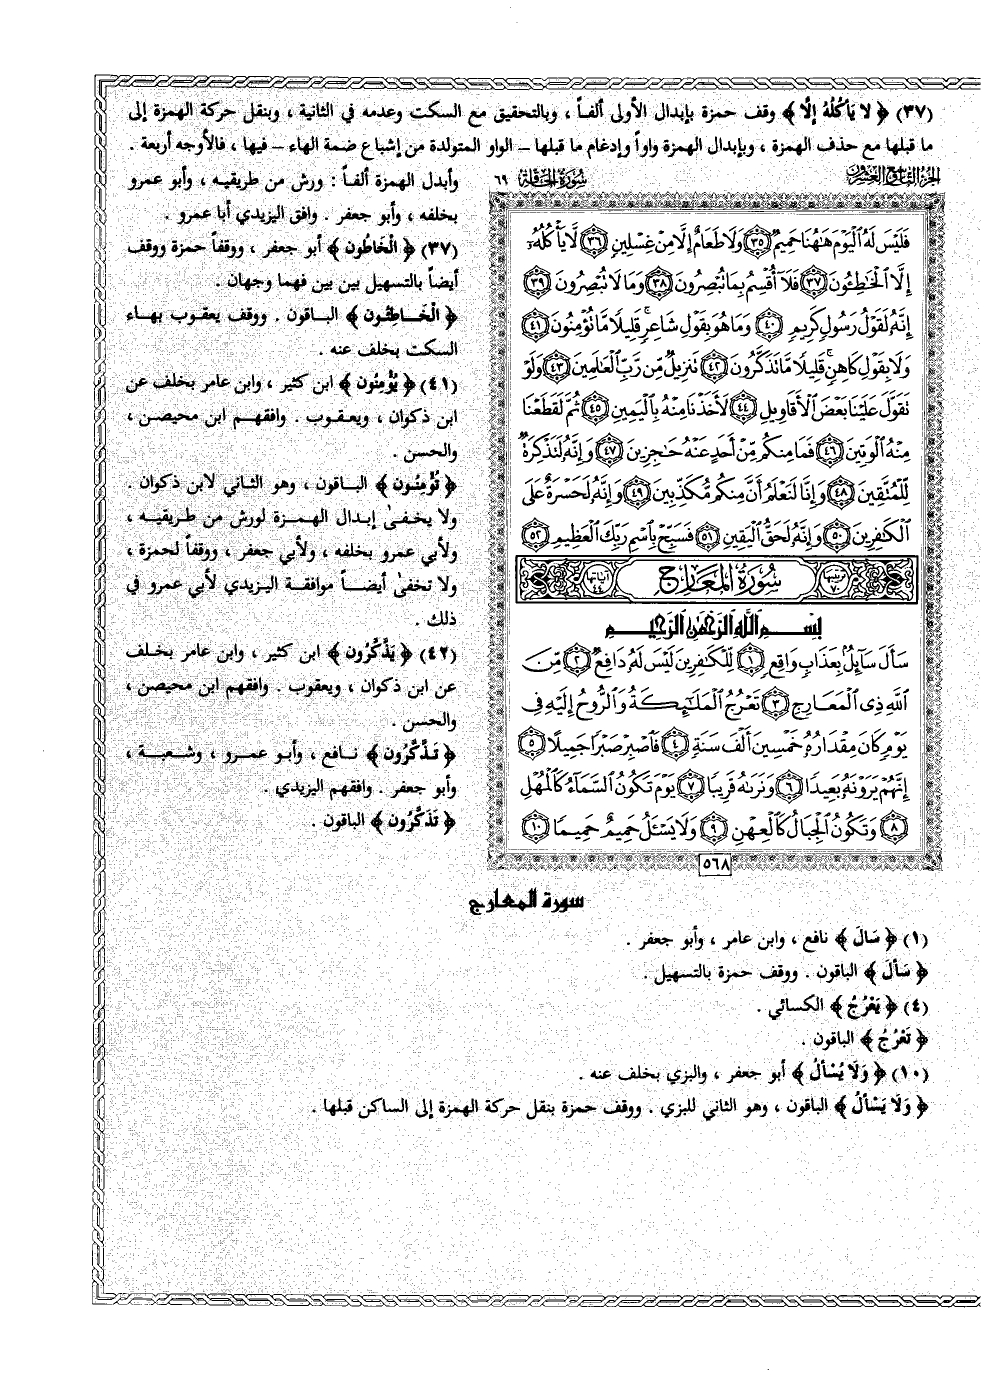 (٣٧) ﴿ لَا يَأْكُلُهُ إِلَّا ﴾ وقف حمزة بإبدال الأولى ألفاً ، وبالتحقيق مع السكت وعدمه في الثانية ، وبنقل حركة الهمزة إلى
ما قبلها مع حذف الهمزة ، وبإبدال الهمزة واواً وإدغام ما قبلها – الواو المتولدة من إشباع ضمة الهاء – فيها ، فالأوجه أربعة .
وأبدل الهمزة ألفاً : ورش من طريقيه ، وأبو عمرو
بخلفه ، وأبو جعفر . وافق اليزيدي أبا عمرو .
(٣٧) ﴿ الْخَاطُون ﴾ أبو جعفر ، ووقفاً حمزة ووقف
أيضاً بالتسهيل بين بين فهما وجهان .
﴿ الْخَـاطِئُـون ﴾ البـاقون . ووقف يعقـوب بهـاء
السكت بخلف عنه .
(٤١) ﴿ يُؤْمِنُون ﴾ ابن كثير ، وابن عامر بخلف عن
ابن ذكوان ، ويعـقـوب . وافقهـم ابن محيصن ،
والحسن .
﴿ تُؤْمِنُـون ﴾ البـاقون ، وهو الثاني لابن ذكوان .
ولا يخـفـىٰ إبـدال الهـمـزة لورش من طريقيـه ،
ولأبي عمرو بخلفه ، ولأبي جعفر ، ووقفاً لحمزة ،
ولا تخفىٰ أيضـاً موافقة اليـزيدي لأبي عمرو في
ذلك .
(٤٢) ﴿ يَذَّكَّرُون ﴾ ابن كثير ، وابن عامر بخلف
عن ابن ذكوان ، ويعقوب . وافقهم ابن محيصن ،
والحسن .
﴿ تَـذَّكَّرُون ﴾ نـافع ، وأبـو عمـرو ، وشـعبـة ،
وأبو جعفر . وافقهم اليزيدي .
﴿ تَذَكَّرُون ﴾ الباقون .
الجزء التاسع والعشرون
سورة الحاقة ٦٩
فَلَيْسَ لَهُ الْيَوْمَ هَٰهُنَا حَمِيمٌ ٣٥ وَلَا طَعَامٌ إِلَّا مِنْ غِسْلِينٍ ٣٦ لَّا يَأْكُلُهُۥٓ
إِلَّا الْخَٰطِـُٔونَ ٣٧ فَلَآ أُقْسِمُ بِمَا تُبْصِرُونَ ٣٨ وَمَا لَا تُبْصِرُونَ ٣٩
إِنَّهُۥ لَقَوْلُ رَسُولٍ كَرِيمٍ ٤٠ وَمَا هُوَ بِقَوْلِ شَاعِرٍ ۚ قَلِيلًا مَّا تُؤْمِنُونَ ٤١
وَلَا بِقَوْلِ كَاهِنٍ ۚ قَلِيلًا مَّا تَذَكَّرُونَ ٤٢ تَنزِيلٌ مِّن رَّبِّ الْعَٰلَمِينَ ٤٣ وَلَوْ
تَقَوَّلَ عَلَيْنَا بَعْضَ الْأَقَاوِيلِ ٤٤ لَأَخَذْنَا مِنْهُ بِالْيَمِينِ ٤٥ ثُمَّ لَقَطَعْنَا
مِنْهُ الْوَتِينَ ٤٦ فَمَا مِنكُم مِّنْ أَحَدٍ عَنْهُ حَٰجِزِينَ ٤٧ وَإِنَّهُۥ لَتَذْكِرَةٌ
لِّلْمُتَّقِينَ ٤٨ وَإِنَّا لَنَعْلَمُ أَنَّ مِنكُم مُّكَذِّبِينَ ٤٩ وَإِنَّهُۥ لَحَسْرَةٌ عَلَى
الْكَٰفِرِينَ ٥٠ وَإِنَّهُۥ لَحَقُّ الْيَقِينِ ٥١ فَسَبِّحْ بِاسْمِ رَبِّكَ الْعَظِيمِ ٥٢
ترتيبها ٧٠ سُورَةُ الْمَعَارِجِ آياتها ٤٤
بِسْمِ اللَّهِ الرَّحْمَٰنِ الرَّحِيمِ
سَأَلَ سَآئِلٌۢ بِعَذَابٍ وَاقِعٍ ١ لِّلْكَٰفِرِينَ لَيْسَ لَهُۥ دَافِعٌ ٢ مِّنَ
اللَّهِ ذِي الْمَعَارِجِ ٣ تَعْرُجُ الْمَلَٰٓئِكَةُ وَالرُّوحُ إِلَيْهِ فِي
يَوْمٍ كَانَ مِقْدَارُهُۥ خَمْسِينَ أَلْفَ سَنَةٍ ٤ فَاصْبِرْ صَبْرًا جَمِيلًا ٥
إِنَّهُمْ يَرَوْنَهُۥ بَعِيدًا ٦ وَنَرَىٰهُ قَرِيبًا ٧ يَوْمَ تَكُونُ السَّمَآءُ كَالْمُهْلِ
٨ وَتَكُونُ الْجِبَالُ كَالْعِهْنِ ٩ وَلَا يَسْـَٔلُ حَمِيمٌ حَمِيمًا ١٠
٥٦٨
سورة المعارج
(١) ﴿ سَالَ ﴾ نافع ، وابن عامر ، وأبو جعفر .
﴿ سَأَلَ ﴾ الباقون . ووقف حمزة بالتسهيل .
(٤) ﴿ يَعْرُجُ ﴾ الكسائي .
﴿ تَعْرُجُ ﴾ الباقون .
(١٠) ﴿ وَلَا يُسْأَلُ ﴾ أبو جعفر ، والبزي بخلف عنه .
﴿ وَلَا يَسْأَلُ ﴾ الباقون ، وهو الثاني للبزي . ووقف حمزة بنقل حركة الهمزة إلى الساكن قبلها .